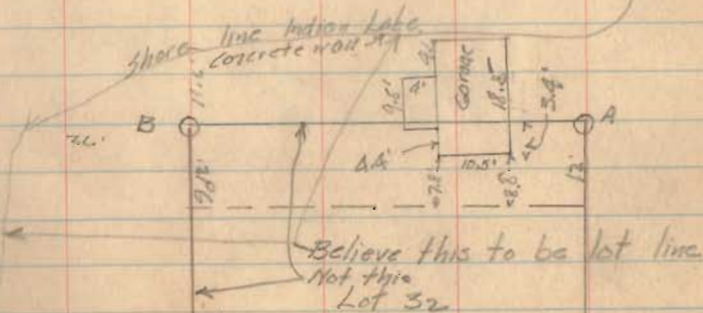 Shore line Indian Lake
Concrete wall
Garage
18.5'
9.8'
4'
3.4'
B
A
4.4'
10.5'
7.8'
8.8'
12'
Believe this to be lot line
Not this
Lot 32